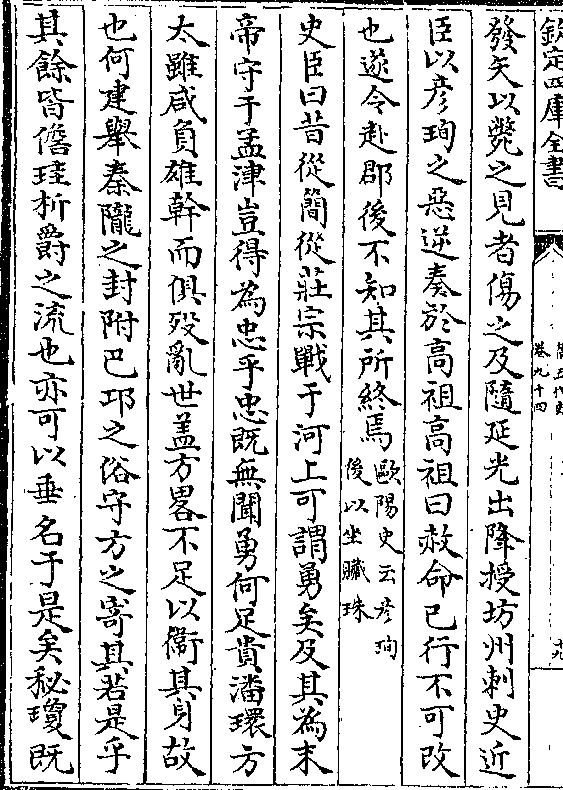 欽定四庫全書
舊五代史
卷九十四
十九
發矢以斃之見者傷之及隨延光出降授坊州刺史近
臣以彦珣之惡逆奏於高祖高祖曰赦命已行不可改
也遂令赴郡後不知其所終焉歐陽史云彦珣後以坐贓殊
史臣曰昔從簡從莊宗戰于河上可謂勇矣及其為末
帝守于孟津豈得為忠乎忠既無聞勇何足貴潘環方
太雖咸負雄幹而俱殁亂世盖方畧不足以衞其身故
也何建舉秦隴之封附巴卭之俗守方之寄其若是乎
其餘皆儋珪析爵之流也亦可以垂名于是矣秘瓊既